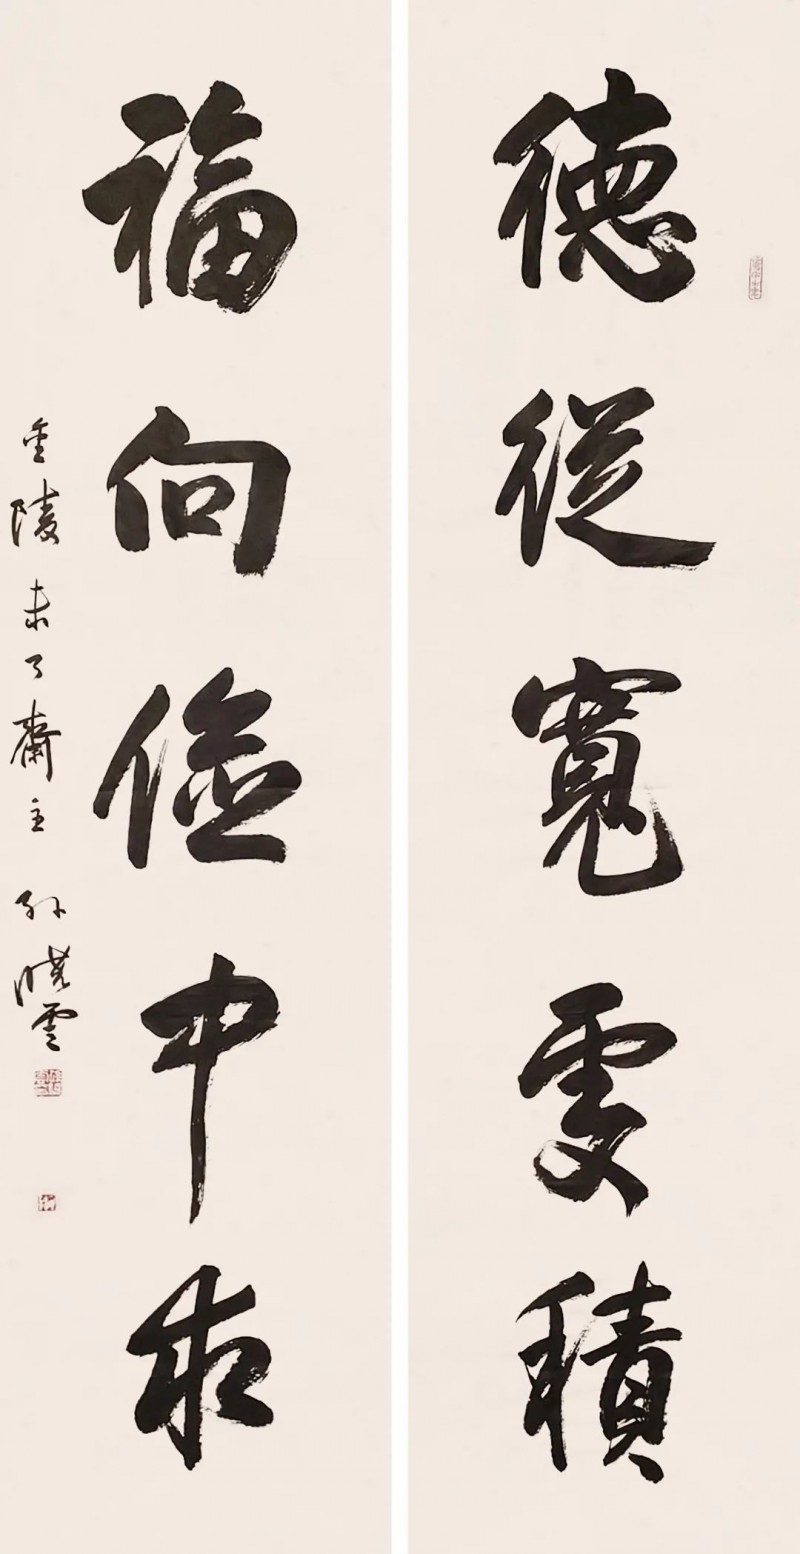 德從寬處積
福向儉中求
金陵未了齋主孫曉雲